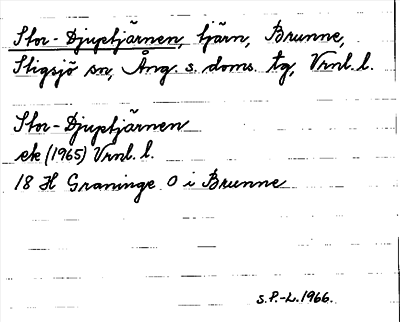 Stor-Djuptjärnen, tjärn, Brunne,
Stigsjö sn, Ång. s. doms. tg, Vrnl. l.
Stor-Djuptjärnen
ek (1965) Vrnl. l.
18 H Graninge O i Brunne
S.P.-L. 1966.